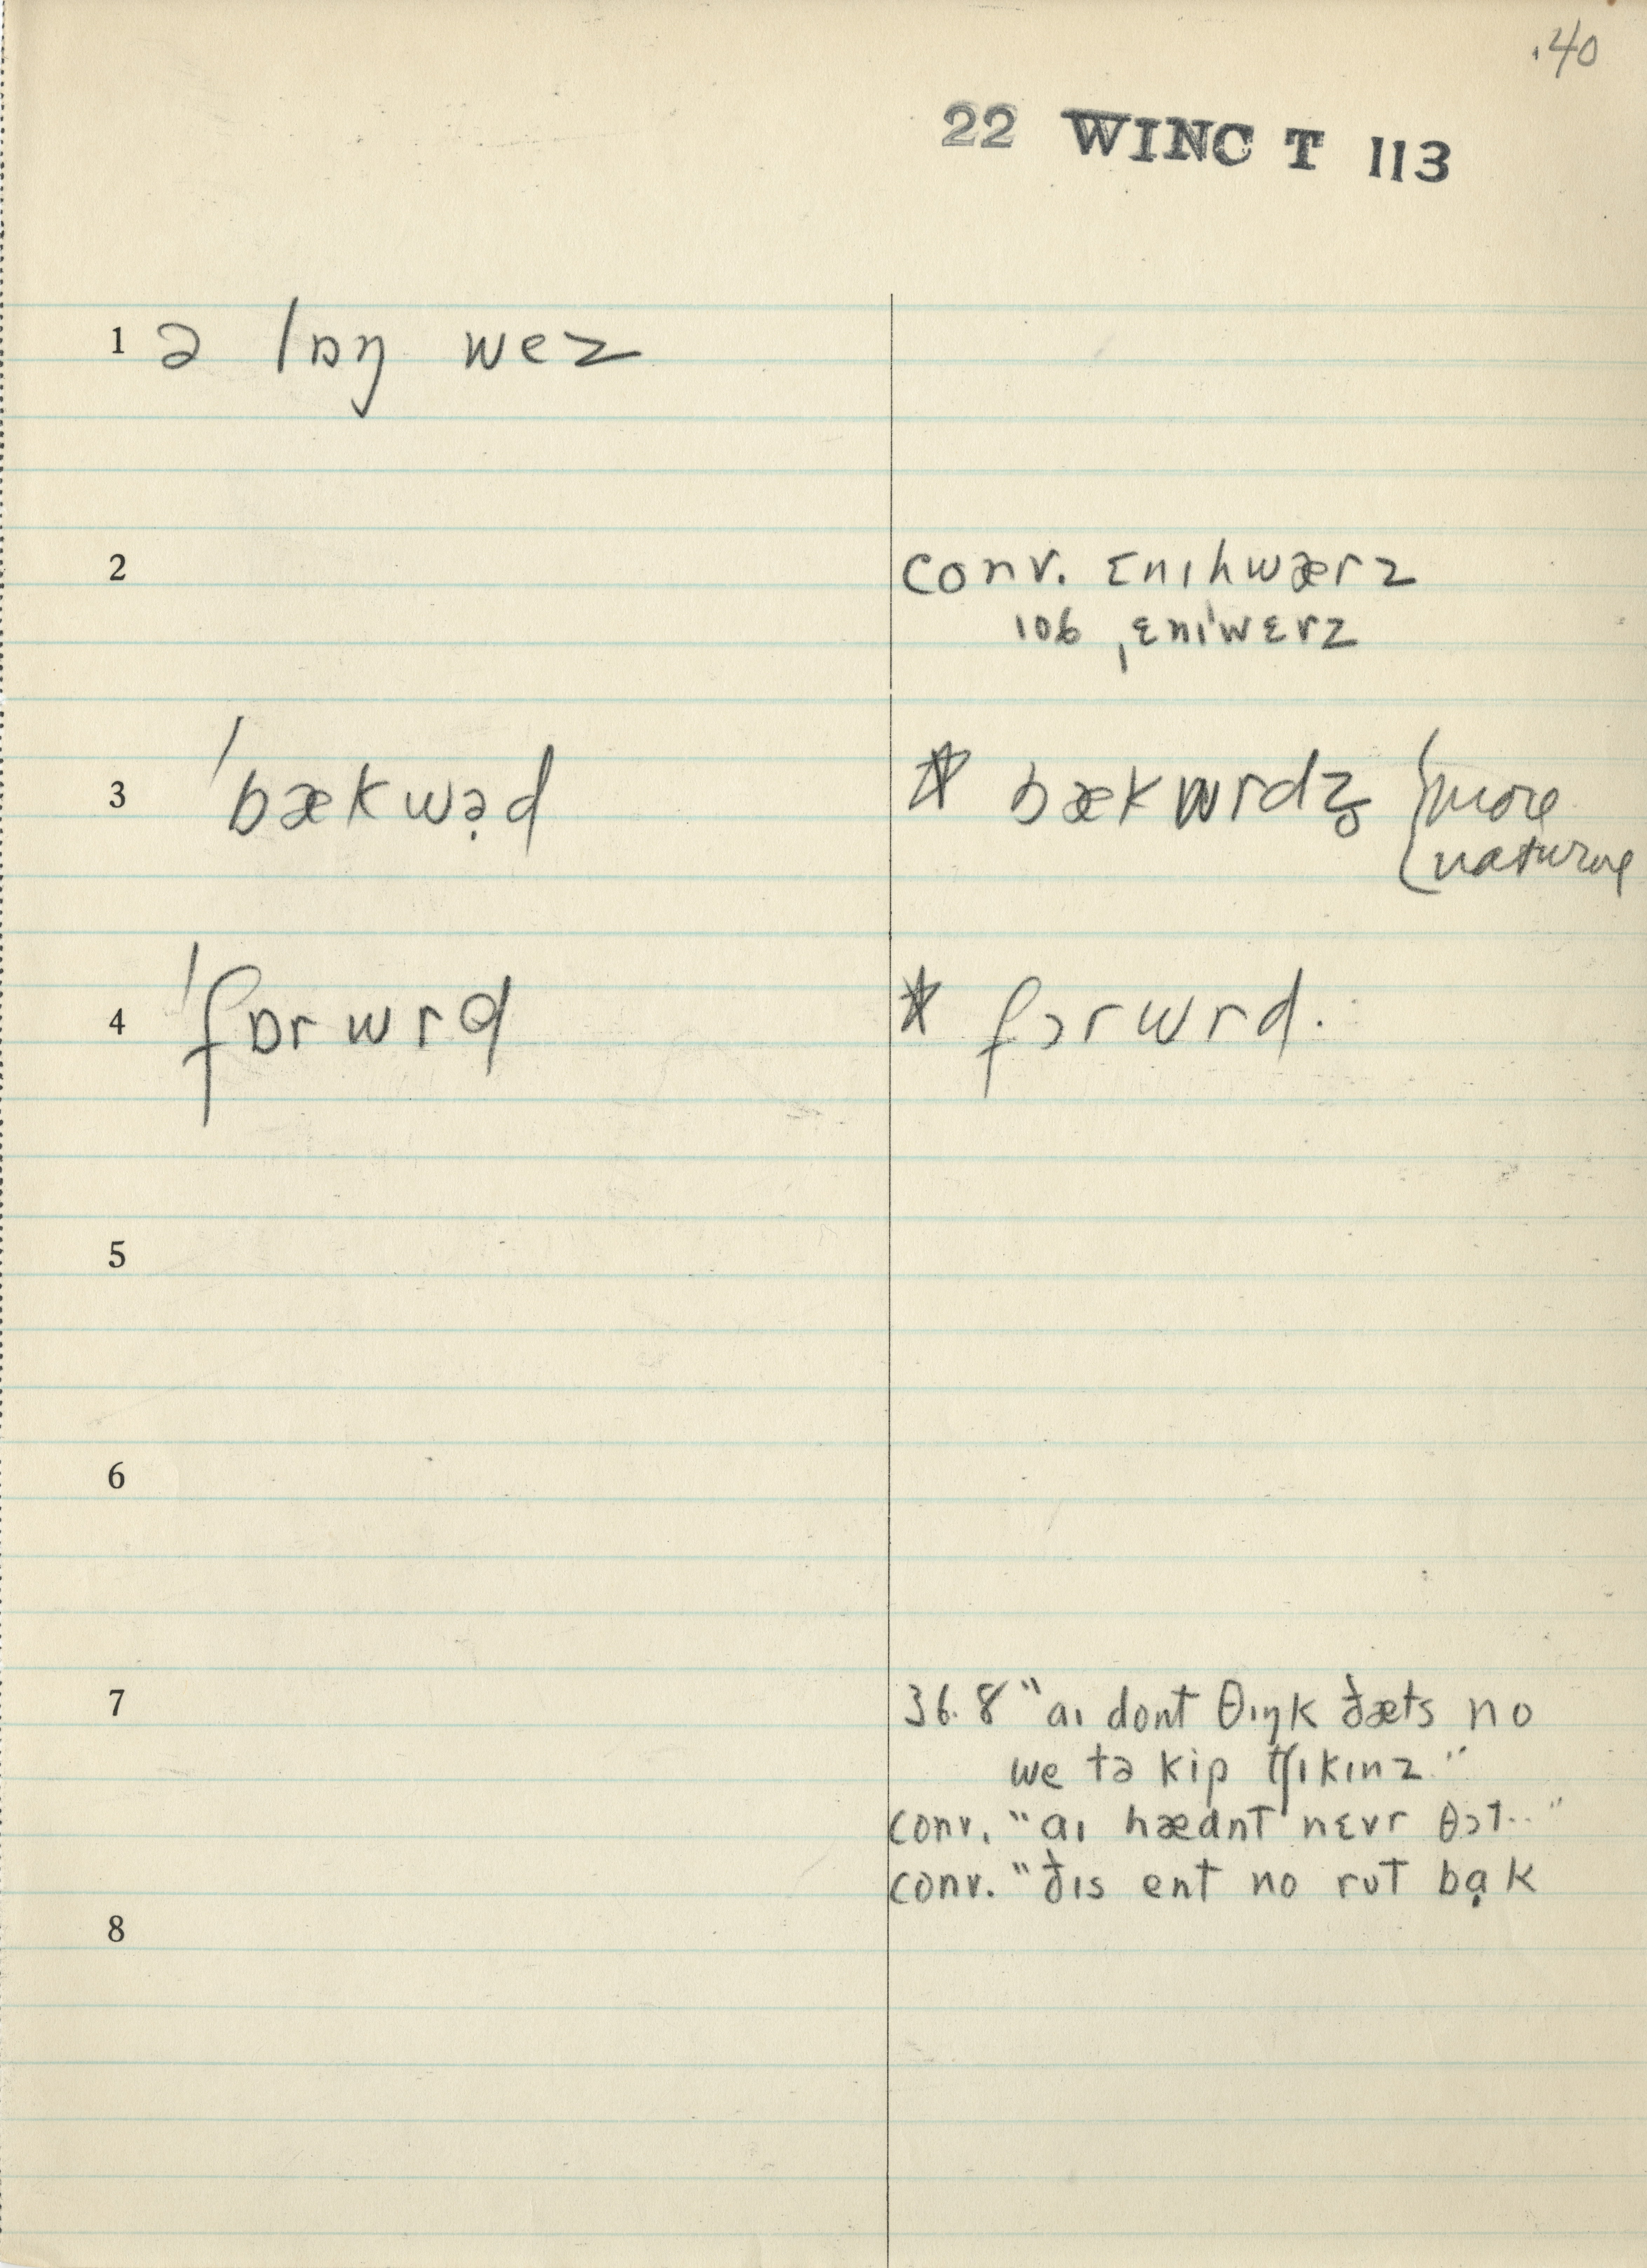 .40
22 WINC T 113
1 ə lɒŋ wez
2 conv. ɛnɪhwærz
106 ˌɛnɪˈwɛrz
3 ˈbækwə̣d * bækwrdz̥ {more
natural
4 ˈfɒrwrd * fɔrwrd.
5
6
7 36.8 "aɪ dont θɪŋk ðæts no
we tə kip tʃɪkɪnz"
conv. "aɪ hædnt nɛvr θɔt.."
conv. "ðɪs ent no rut bạk
8